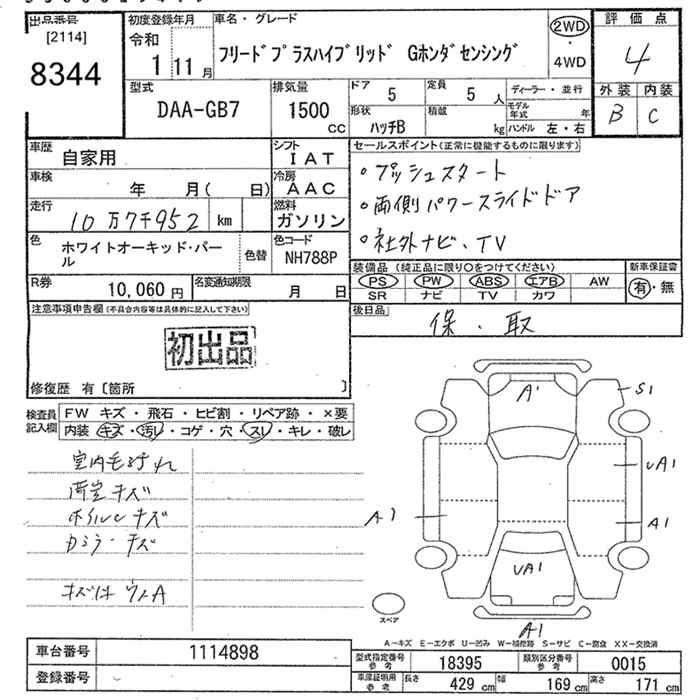 出品番号
[2114]
8344
初度登録年月
令和
1 11月
車名・グレード
フリードプラスハイブリッド Gホンダセンシング
2WD
・
4WD
評価点
4
外装 内装
B C
型式
DAA-GB7
排気量
1500
CC
ドア 5
定員 5 人
形状 ハッチB
積載 kg
ディーラー・並行
モデル年式 年
ハンドル 左・右
車歴 自家用
シフト IAT
車検 年 月( 日)
冷房 AAC
走行 10万7千952 km
燃料 ガソリン
色 ホワイトオーキッド・パール
色替
色コード NH788P
R券 10,060円
名変通知期限 月 日
セールスポイント(正常に機能するものに限ります)
・プッシュスタート
・両側パワースライドドア
・社外ナビ、TV
装備品(純正品に限り○をつけてください)
PS PW ABS エアB AW
SR ナビ TV カワ
新車保証書
有・無
後日品
保・取
注意事項申告欄(不具合内容等は具体的に記入して下さい)
初出品
修復歴 有〔箇所 〕
検査員記入欄
FW キズ・飛石・ヒビ割・リペア跡・×要
内装 キズ・汚レ・コゲ・穴・スレ・キレ・破レ
キズ
キズ
キズ
A1
S1
UA1
A1
A1
UA1
A1
スペア
A-キズ E-エクボ U-凹み W-補修跡 S-サビ C-腐食 XX-交換済
車台番号 1114898
登録番号
型式指定番号参考 18395
類別区分番号参考 0015
車庫証明用参考 長さ 429cm 幅 169cm 高さ 171cm